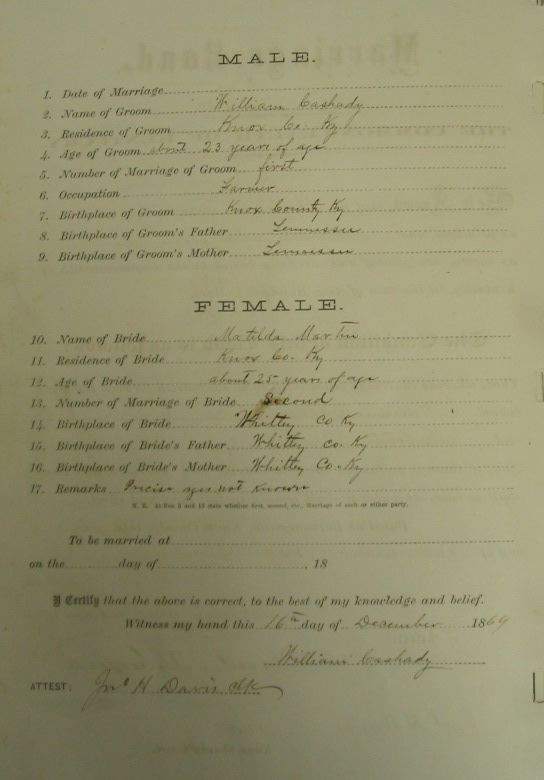 MALE.
1. Date of Marriage
2. Name of Groom William Cashady
3. Residence of Groom Knox Co. Ky
4. Age of Groom about 23 years of age
5. Number of Marriage of Groom first
6. Occupation Farmer
7. Birthplace of Groom Knox County Ky
8. Birthplace of Groom's Father Tennessee
9. Birthplace of Groom's Mother Tennessee
FEMALE.
10. Name of Bride Matilda Martin
11. Residence of Bride Knox Co. Ky
12. Age of Bride about 25 years of age
13. Number of Marriage of Bride Second
14. Birthplace of Bride Whitley Co Ky
15. Birthplace of Bride's Father Whitley Co. Ky
16. Birthplace of Bride's Mother Whitley Co. Ky
17. Remarks Precise ages not known
N. B. At Nos. 5 and 13 state whether first, second, etc., Marriage of each or either party.
To be married at
on the day of , 18
I Certify that the above is correct, to the best of my knowledge and belief.
Witness my hand this 16th day of December 1869
William Cashady
ATTEST: Jno H Davis clk